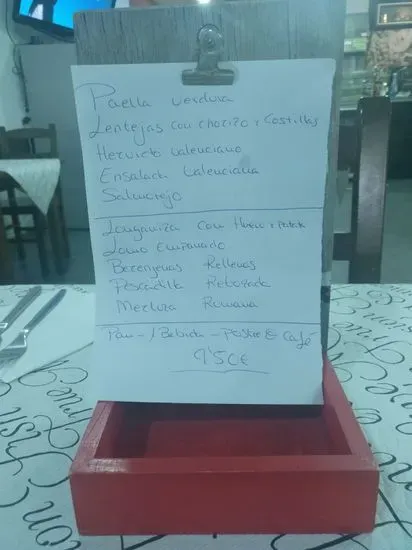 Paella verdura
Lentejas con chorizo y Costillas
Hervido Valenciano
Ensalada Valenciana
Salmorejo
Longaniza con Huevo y Patata
Lomo Empanado
Berenjenas Rellenas
Pescadilla Rebozada
Merluza Romana
Pan - / Bebida - Postre o Café
9'50€